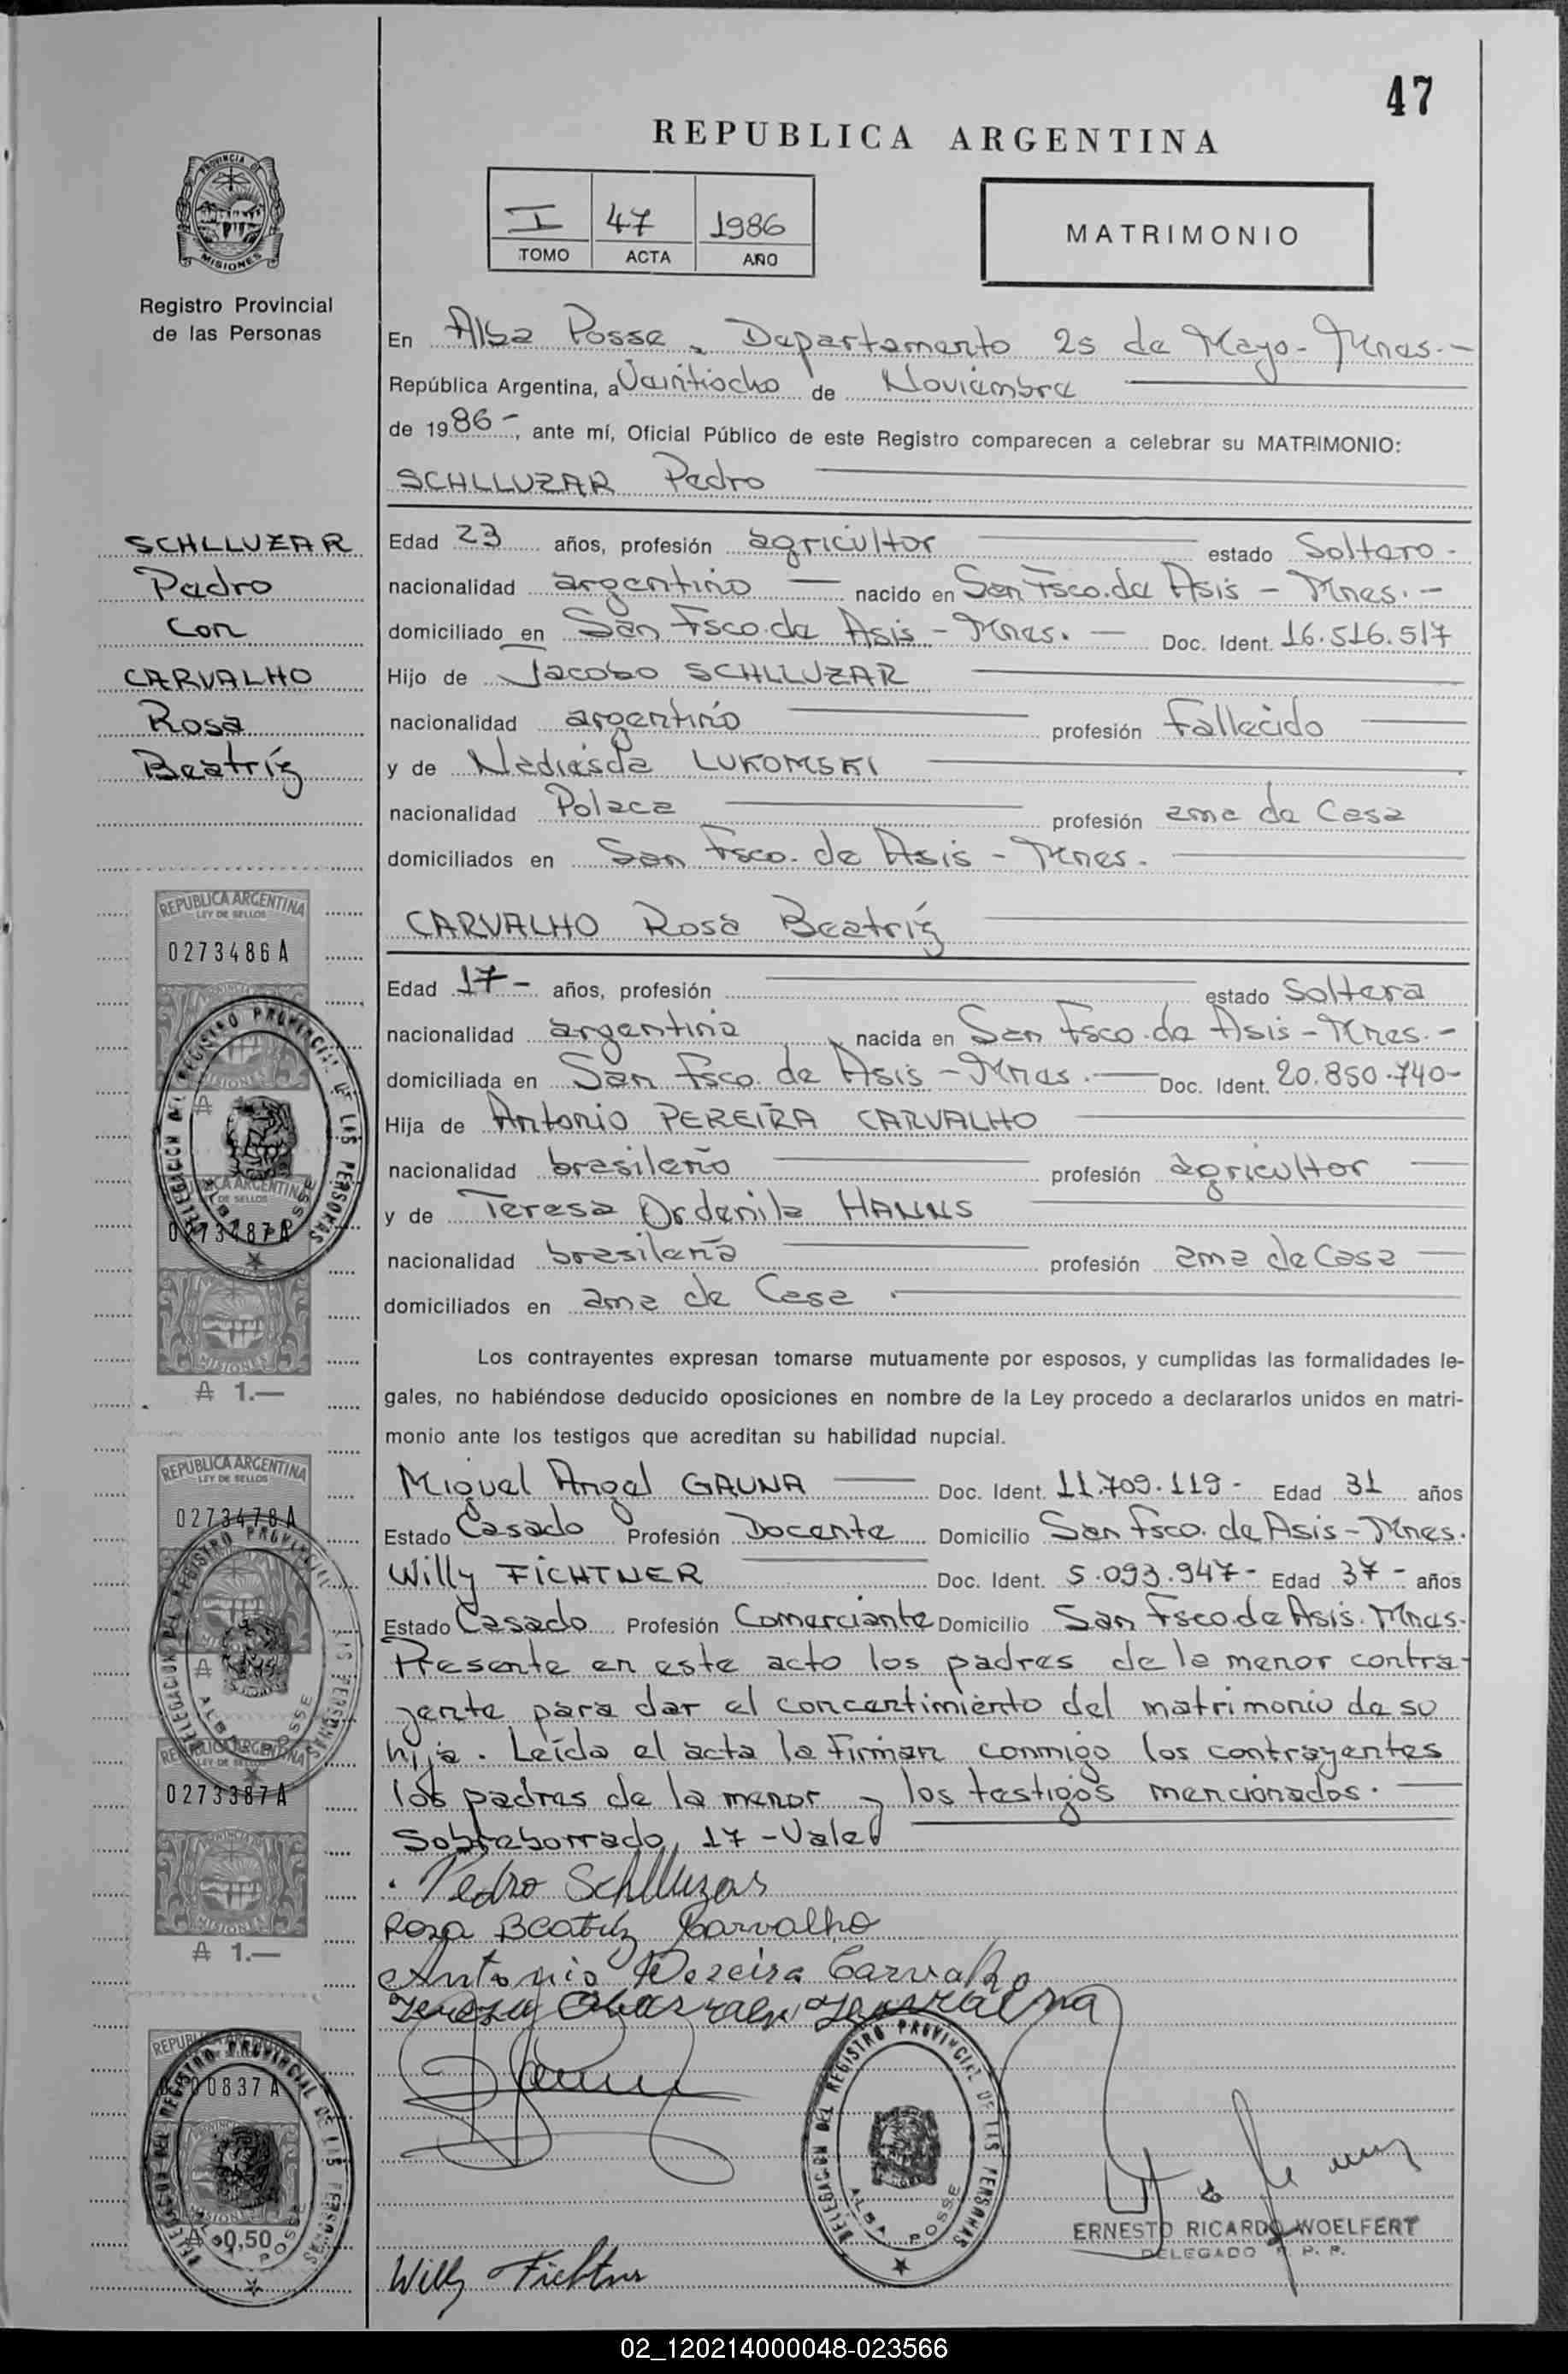 47
REPUBLICA ARGENTINA
PROVINCIA DE
MISIONES
Registro Provincial
de las Personas
I 47 1986
TOMO ACTA AÑO
MATRIMONIO
En Alba Posse, Departamento 25 de Mayo - Mnes.-
República Argentina, a Veintiocho de Noviembre
de 1986-, ante mí, Oficial Público de este Registro comparecen a celebrar su MATRIMONIO:
SCHLLUZAR Pedro
SCHLLUZAR
Pedro
con
CARVALHO
Rosa
Beatríz
Edad 23 años, profesión agricultor estado Soltero-
nacionalidad argentino nacido en San Fsco. de Asis - Mnes.-
domiciliado en San Fsco. de Asis - Mnes. Doc. Ident. 16.516.517
Hijo de Jacobo SCHLLUZAR
nacionalidad argentino profesión Fallecido
y de Nadiesda LUKOMSKI
nacionalidad Polaca profesión ama de Casa
domiciliados en San Fsco. de Asis - Mnes.
CARVALHO Rosa Beatríz
Edad 17- años, profesión estado Soltera
nacionalidad argentina nacida en San Fsco. de Asis - Mnes.-
domiciliada en San Fsco. de Asis - Mnes. Doc. Ident. 20.850.740-
Hija de Antonio PEREIRA CARVALHO
nacionalidad brasileño profesión agricultor
y de Teresa Ordenila HANNS
nacionalidad brasileña profesión ama de Casa
domiciliados en ama de Casa.
Los contrayentes expresan tomarse mutuamente por esposos, y cumplidas las formalidades le-
gales, no habiéndose deducido oposiciones en nombre de la Ley procedo a declararlos unidos en matri-
monio ante los testigos que acreditan su habilidad nupcial.
Miguel Angel GAUNA Doc. Ident. 11.709.119- Edad 31 años
Estado Casado Profesión Docente Domicilio San Fsco. de Asis - Mnes.
Willy FICHTNER Doc. Ident. 5.093.947- Edad 37- años
Estado Casado Profesión Comerciante Domicilio San Fsco. de Asis. Mnes.
Presente en este acto los padres de la menor contra-
yente para dar el concentimiento del matrimonio de su
hija. Leída el acta la Firman conmigo los contrayentes
los padres de la menor y los testigos mencionados.
Sobreborrado, 17 - Vale
Pedro Schlluzar
Rosa Beatriz Carvalho
Antonio Pereira Carvalho
ERNESTO RICARDO WOELFERT
DELEGADO R. P. P.
Willy Fichtner
REPUBLICA ARGENTINA
LEY DE SELLOS
0273486A
MISIONES
0273487A
MISIONES
₳ 1.—
REPUBLICA ARGENTINA
LEY DE SELLOS
0273478A
REPUBLICA ARGENTINA
LEY DE SELLOS
0273387A
PROVINCIA DE
MISIONES
₳ 1.—
0,50
DELEGACION DEL REGISTRO PROVINCIAL DE LAS PERSONAS
ALBA POSSE
DELEGACION DEL REGISTRO PROVINCIAL DE LAS PERSONAS
ALBA POSSE
DELEGACION DEL REGISTRO PROVINCIAL DE LAS PERSONAS
ALBA POSSE
DELEGACION DEL REGISTRO PROVINCIAL DE LAS PERSONAS
ALBA POSSE
02_120214000048-023566